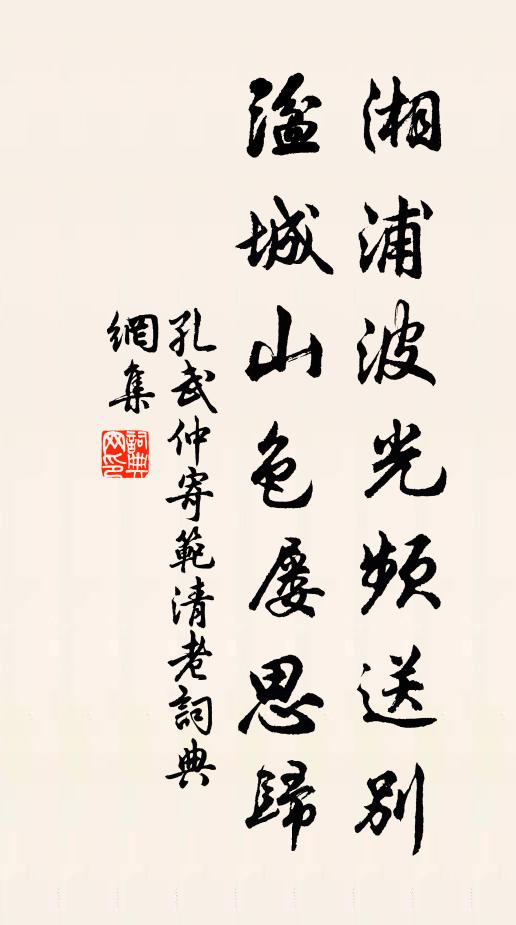 湘浦波光頻送別
湓城山色屡思歸
孔武仲寄範清老詞典
網集
詞典
网印